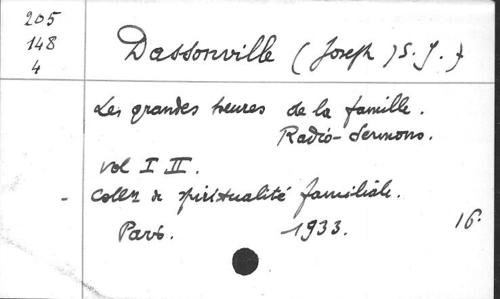 205
148
4
Dassonville (Joseph) S. J. †
Les grandes heures de la famille.
Radio-Sermons.
vol I II.
- Collon de spiritualité familiale.
Paris. 1933. 16°